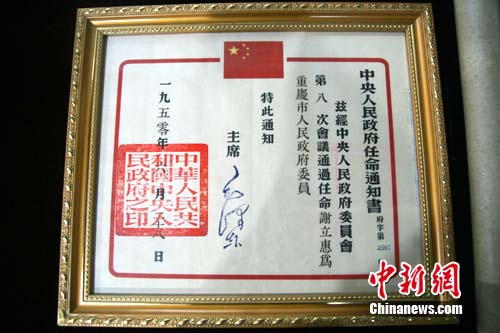 中央人民政府任命通知書
府字第
茲經中央人民政府委員會
第八次會議通過任命謝立惠爲
重慶市人民政府委員
特此通知
主席 毛澤東
一九五〇年 月 八日
中華人民共
和國中央人
民政府之印
中新网
Chinanews.com